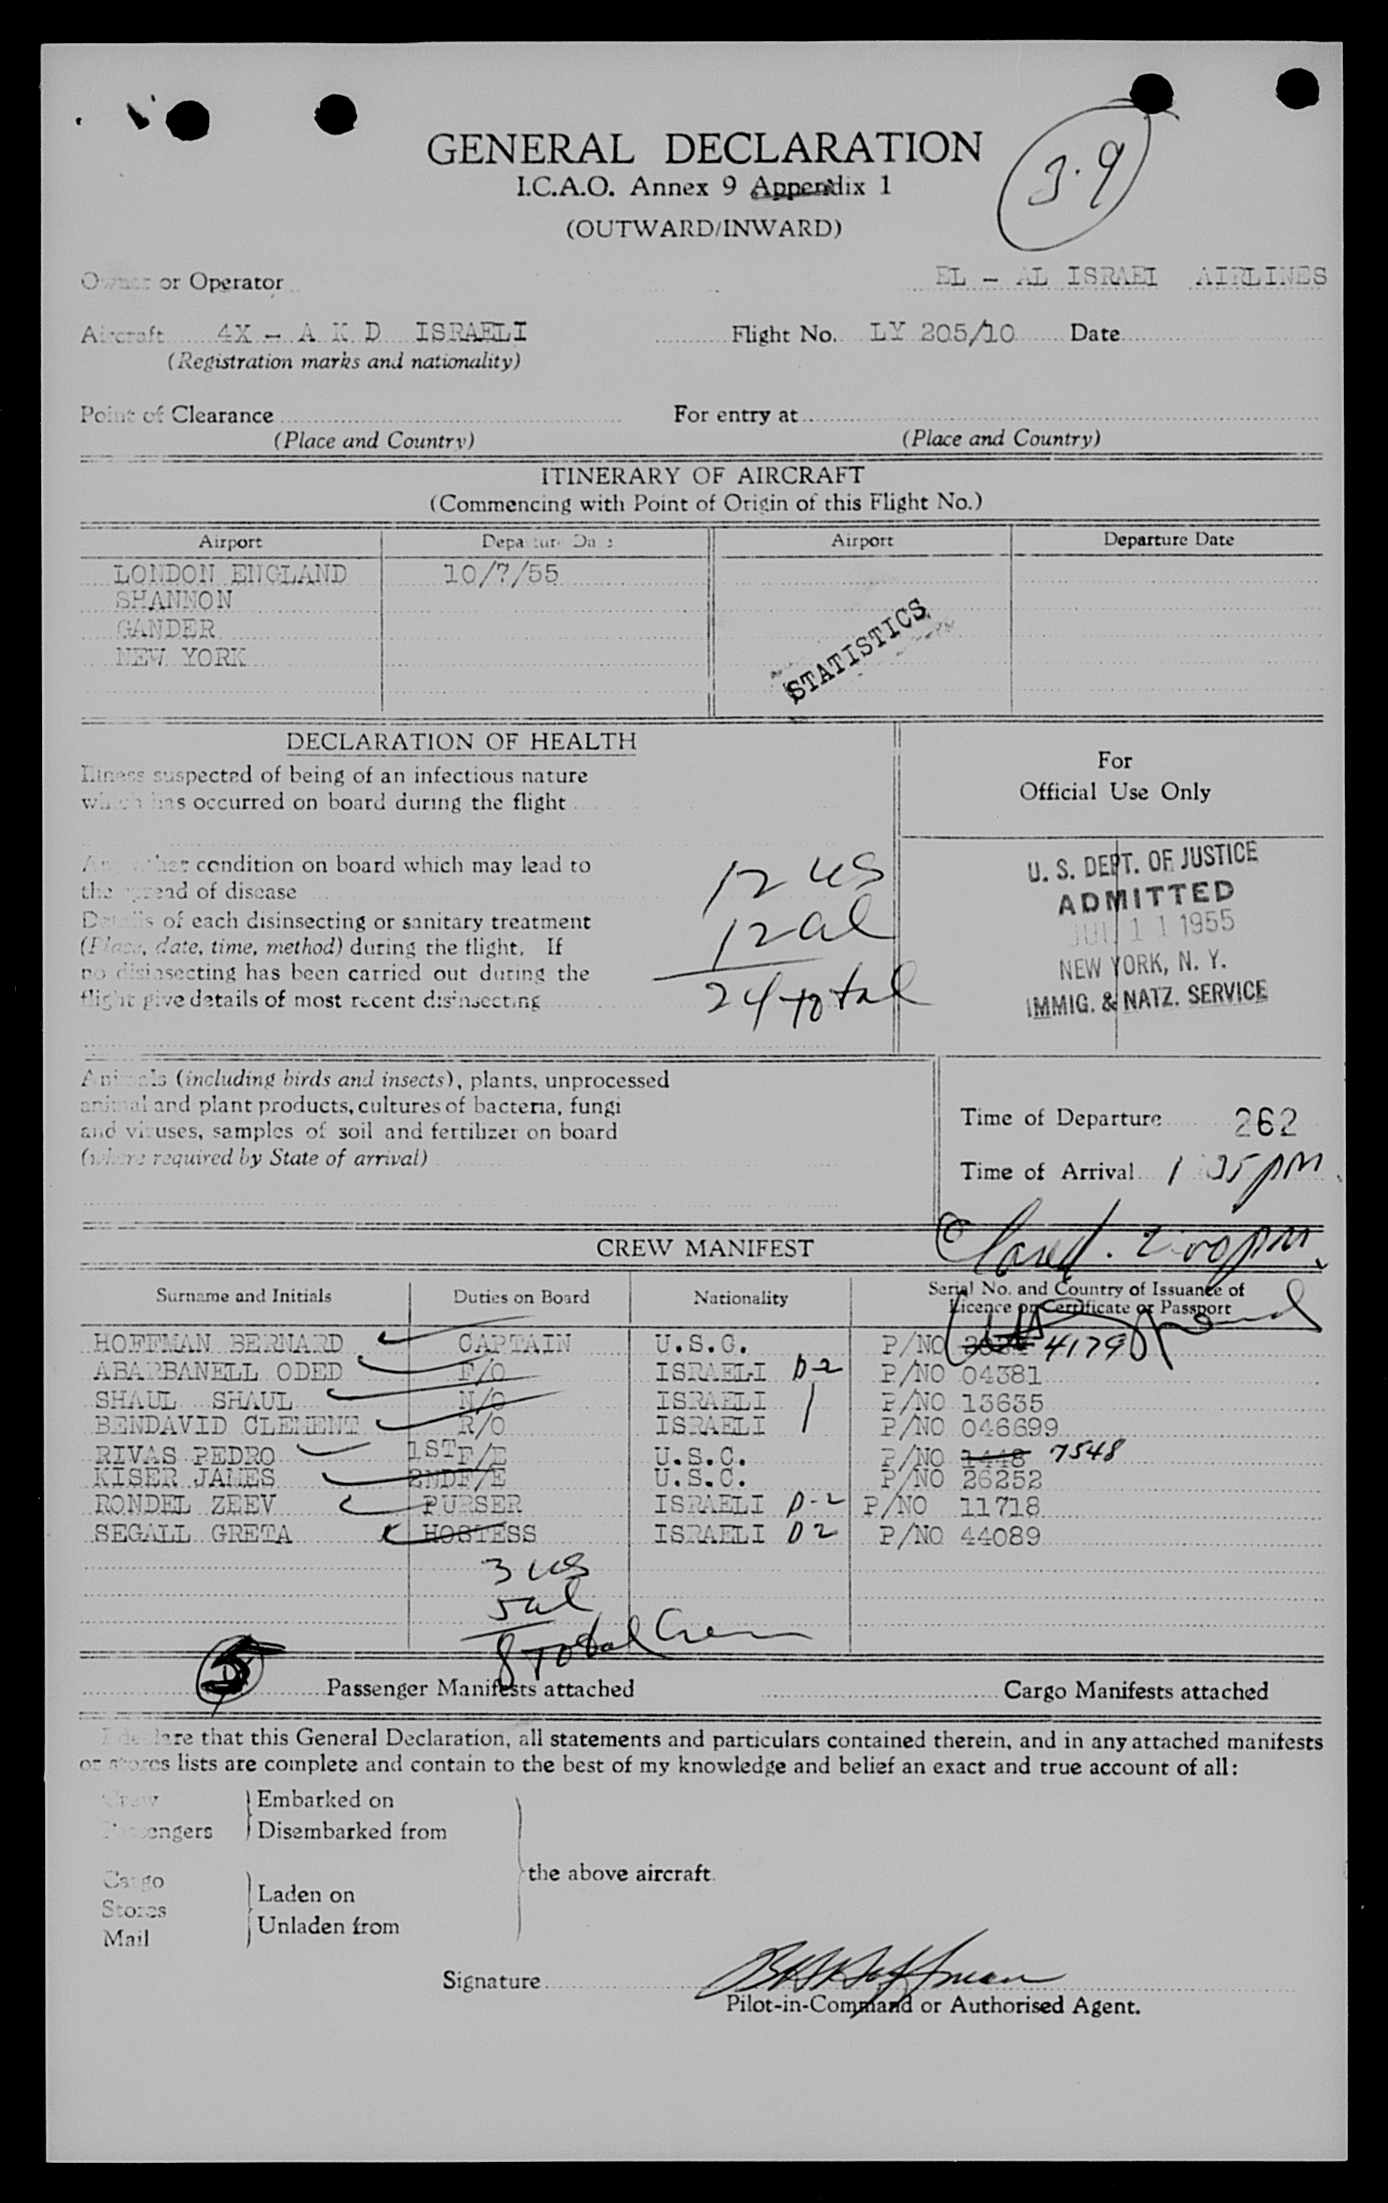 GENERAL DECLARATION
I.C.A.O. Annex 9 Appendix 1
3.9
(OUTWARD/INWARD)
Owner or Operator EL - AL ISRAEL AIRLINES
Aircraft 4X - A K D ISRAELI Flight No. LY 205/10 Date
(Registration marks and nationality)
Point of Clearance For entry at
(Place and Country) (Place and Country)
ITINERARY OF AIRCRAFT
(Commencing with Point of Origin of this Flight No.)
Airport Departure Date Airport Departure Date
LONDON ENGLAND 10/7/55
SHANNON
GANDER
NEW YORK
STATISTICS
DECLARATION OF HEALTH
Illness suspected of being of an infectious nature
which has occurred on board during the flight
Any other condition on board which may lead to
the spread of disease
Details of each disinsecting or sanitary treatment
(Place, date, time, method) during the flight. If
no disinsecting has been carried out during the
flight give details of most recent disinsecting
12 us
12 al
24 total
For
Official Use Only
U. S. DEPT. OF JUSTICE
ADMITTED
JUL 11 1955
NEW YORK, N. Y.
IMMIG. & NATZ. SERVICE
Animals (including birds and insects), plants, unprocessed
animal and plant products, cultures of bacteria, fungi
and viruses, samples of soil and fertilizer on board
(where required by State of arrival)
Time of Departure 262
Time of Arrival 1 35 pm
2:00 pm.
CREW MANIFEST
Surname and Initials Duties on Board Nationality Serial No. and Country of Issuance of
Licence or Certificate or Passport
HOFFMAN BERNARD CAPTAIN U.S.C. P/NO 41790
ABARBANELL ODED F/O ISRAELI D-2 P/NO 04381
SHAUL SHAUL N/O ISRAELI P/NO 13635
BENDAVID CLEMENT R/O ISRAELI P/NO 046699
RIVAS PEDRO 1ST F/E U.S.C. P/NO 1448 7548
KISER JAMES 2ND F/E U.S.C. P/NO 26252
RONDEL ZEEV PURSER ISRAELI D-2 P/NO 11718
SEGALL GRETA HOSTESS ISRAELI D2 P/NO 44089
3 us
5 al
8 total Crew
Passenger Manifests attached Cargo Manifests attached
I declare that this General Declaration, all statements and particulars contained therein, and in any attached manifests
or stores lists are complete and contain to the best of my knowledge and belief an exact and true account of all:
Crew Embarked on
Passengers Disembarked from
the above aircraft.
Cargo
Stores
Mail
Laden on
Unladen from
Signature Hoffman
Pilot-in-Command or Authorised Agent.